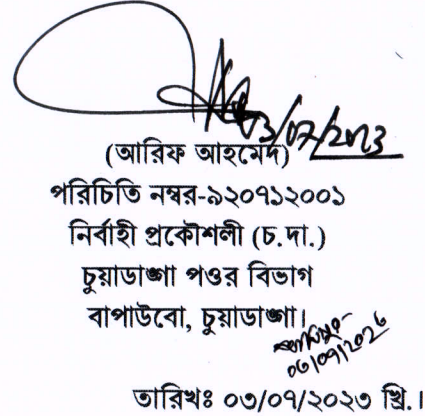 03/07/2023
(আরিফ আহমেদ)
পরিচিতি নম্বর-৯২০৭১২০০১
নির্বাহী প্রকৌশলী (চ.দা.)
চুয়াডাঙ্গা পওর বিভাগ
বাপাউবো, চুয়াডাঙ্গা।
তারিখঃ ০৩/০৭/২০২৩ খ্রি.।